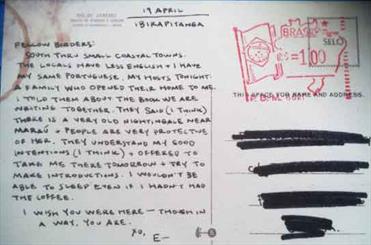 19 APRIL
IBIRAPITANGA
FELLOW BIRDERS:
SOUTH THRU SMALL COASTAL TOWNS.
THE LOCALS HAVE LESS ENGLISH + I HAVE
MY SAME PORTUGUESE. MY HOSTS TONIGHT:
A FAMILY WHO OPENED THEIR HOME TO ME.
I TOLD THEM ABOUT THE BOOK WE ARE
WRITING TOGETHER. THEY SAID (I THINK)
THERE IS A VERY OLD NIGHTINGALE NEAR
MARAÚ + PEOPLE ARE VERY PROTECTIVE
OF HER. THEY UNDERSTAND MY GOOD
INTENTIONS (I THINK) + OFFERED TO
TAKE ME THERE TOMORROW + TRY TO
MAKE INTRODUCTIONS. I WOULDN'T BE
ABLE TO SLEEP EVEN IF I HADN'T HAD
THE COFFEE.
I WISH YOU WERE HERE — THOUGH IN
A WAY, YOU ARE.
XO,
E—
BRASIL
SELO
1,00
THIS SPACE FOR NAME AND ADDRESS.